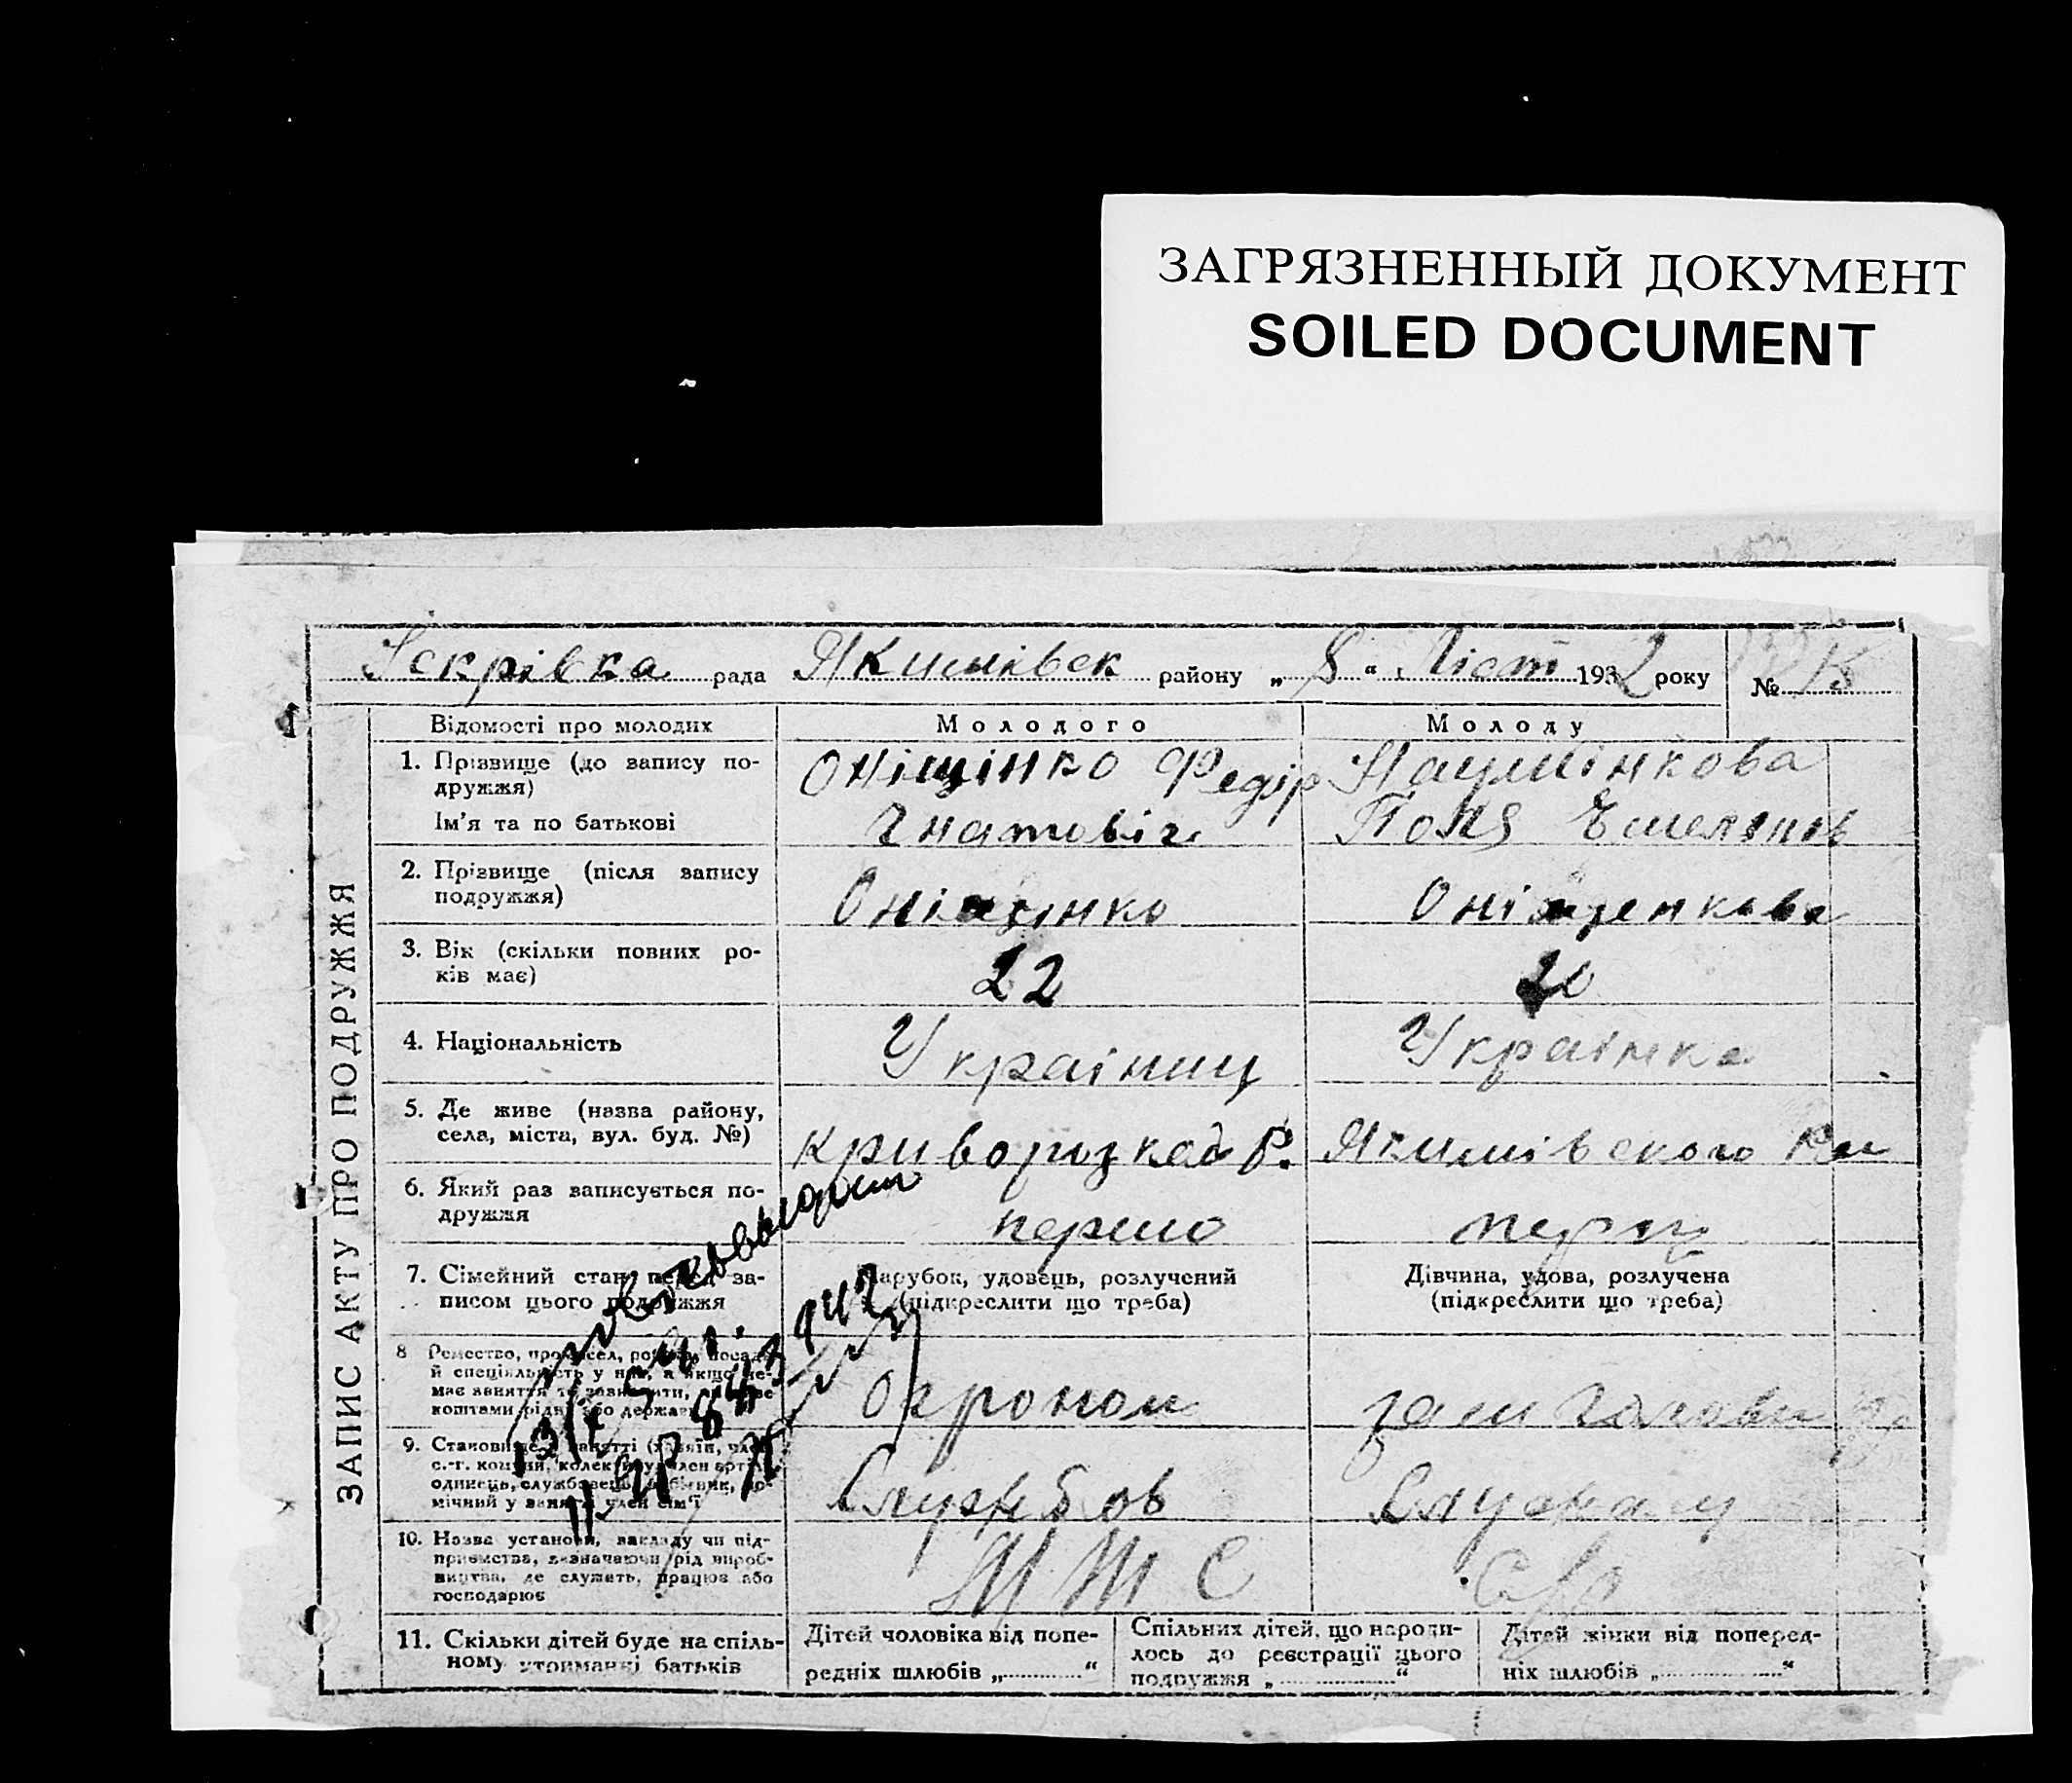 ЗАГРЯЗНЕННЫЙ ДОКУМЕНТ
SOILED DOCUMENT
Іскрівка рада Якимівск району „ 8 “ Ліст 1932 року № 13
ЗАПИС АКТУ ПРО ПОДРУЖЖЯ
Відомості про молодих Молодого Молоду
1. Прізвище (до запису по-
дружжя)
Ім'я та по батькові
Оніщінко Федір
Гнатовіч
Науминкова
Поля Емелянів
2. Прізвище (після запису
подружжя)
Оніщінко
Оніщенкова
3. Вік (скільки повних ро-
ків має)
22
20
4. Національність
Україниц
Українка
5. Де живе (назва району,
села, міста, вул. буд. №)
Р.
Якимівского
6. Який раз записується по-
дружжя
першо
7. Сімейний стан перед за-
писом цього подружжя
Парубок, удовець, розлучений
(підкреслити що треба)
Дівчина, удова, розлучена
(підкреслити що треба)
8 Ремество, промисел, робота, посада
й спеціяльність у них, а якщо не-
має заняття то зазначити, живе
коштами рідні або держави
Огроном
9. Становище в занятті (хазяїн, член
с.-г. комуни, колективу, член артілі
одинець, службовець, робітник, по-
мічний у занятті член сім'ї
Службов
10. Назва установи, закладу чи під-
приємства, зазначаючи рід вироб-
ництва, де служить, працює або
господарює
МТС
11. Скільки дітей буде на спіль-
ному утриманні батьків
Дітей чоловіка від попе-
редніх шлюбів „ “
Спільних дітей, що народи-
лось до реєстрації цього
подружжя „ “
Дітей жінки від поперед-
ніх шлюбів „ “